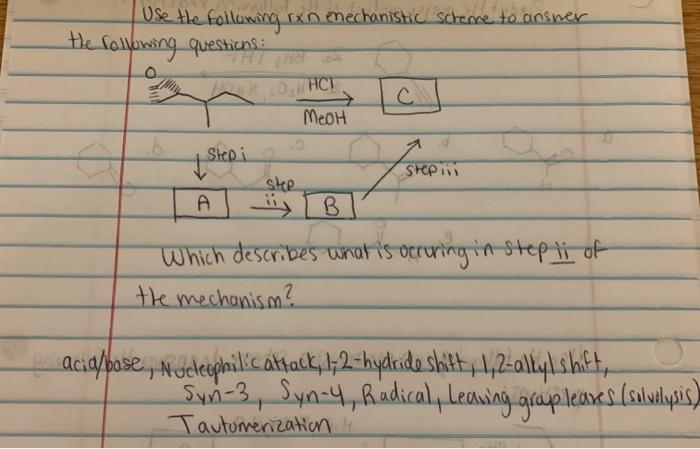 Use the following rxn mechanistic scheme to answer
the following questions:
O
HCl
MeOH
C
Step i
step
ii
step iii
A
B
Which describes what is occuring in step ii of
the mechanism?
acid/base, Nucleophilic attack, 1,2-hydride shift, 1,2-alkyl shift,
Syn-3, Syn-4, Radical, Leaving group leaves (solvolysis)
Tautomerization